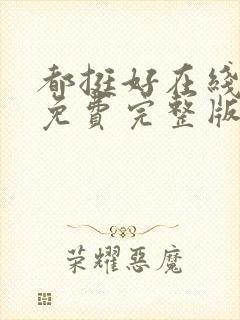 都挺好在线
免费完整版
荣耀恶魔